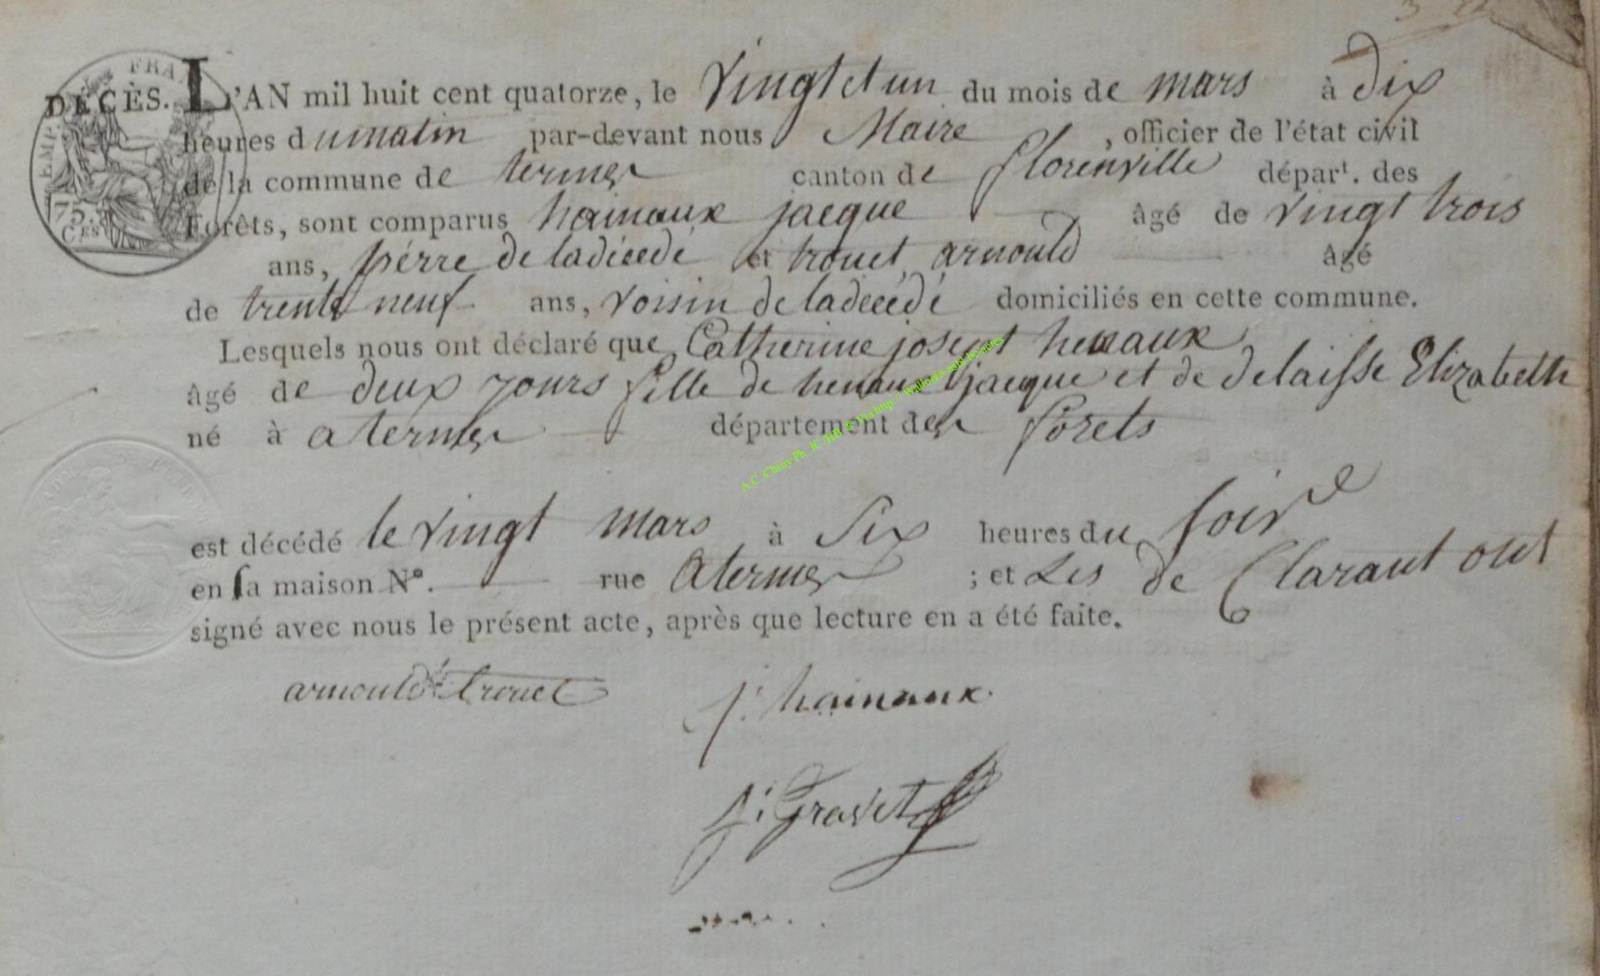 DÉCÈS. L'AN mil huit cent quatorze, le vingt et un du mois de mars à dix
heures du matin par-devant nous Maire, officier de l'état civil
de la commune de termes canton de florenville départ. des
Forêts, sont comparus hainaux jacque âgé de vingt trois
ans, pérre de ladécédé et trouet arnould âgé
de trente neuf ans, voisin de ladécédé domiciliés en cette commune.
Lesquels nous ont déclaré que Catherine josept henaux
âgé de deux jours fille de henaux jacque et de delaisse Elizabethe
né à a termes département des forets
est décédé le vingt mars à Six heures du soire
en sa maison N°. rue a termes ; et Les de Clarant ont
signé avec nous le présent acte, après que lecture en a été faite.
arnould trouet j: hainaux
j: Gravet
75.
CES